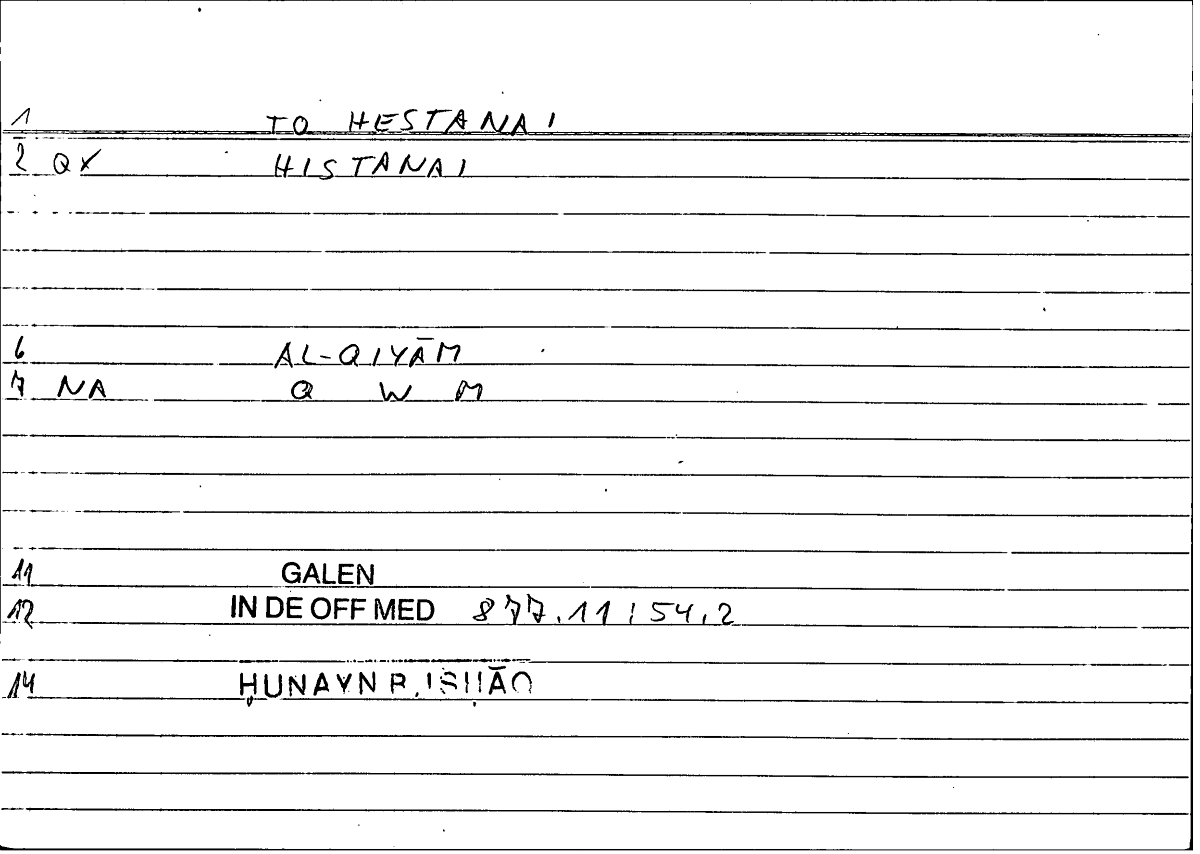 1 TO HESTANAI
2 QX HISTANAI
6 AL-QIYĀM
7 NA Q W M
11 GALEN
12 IN DE OFF MED 877.11 ; 54.2
14 ḤUNAYN B. ISḤĀQ